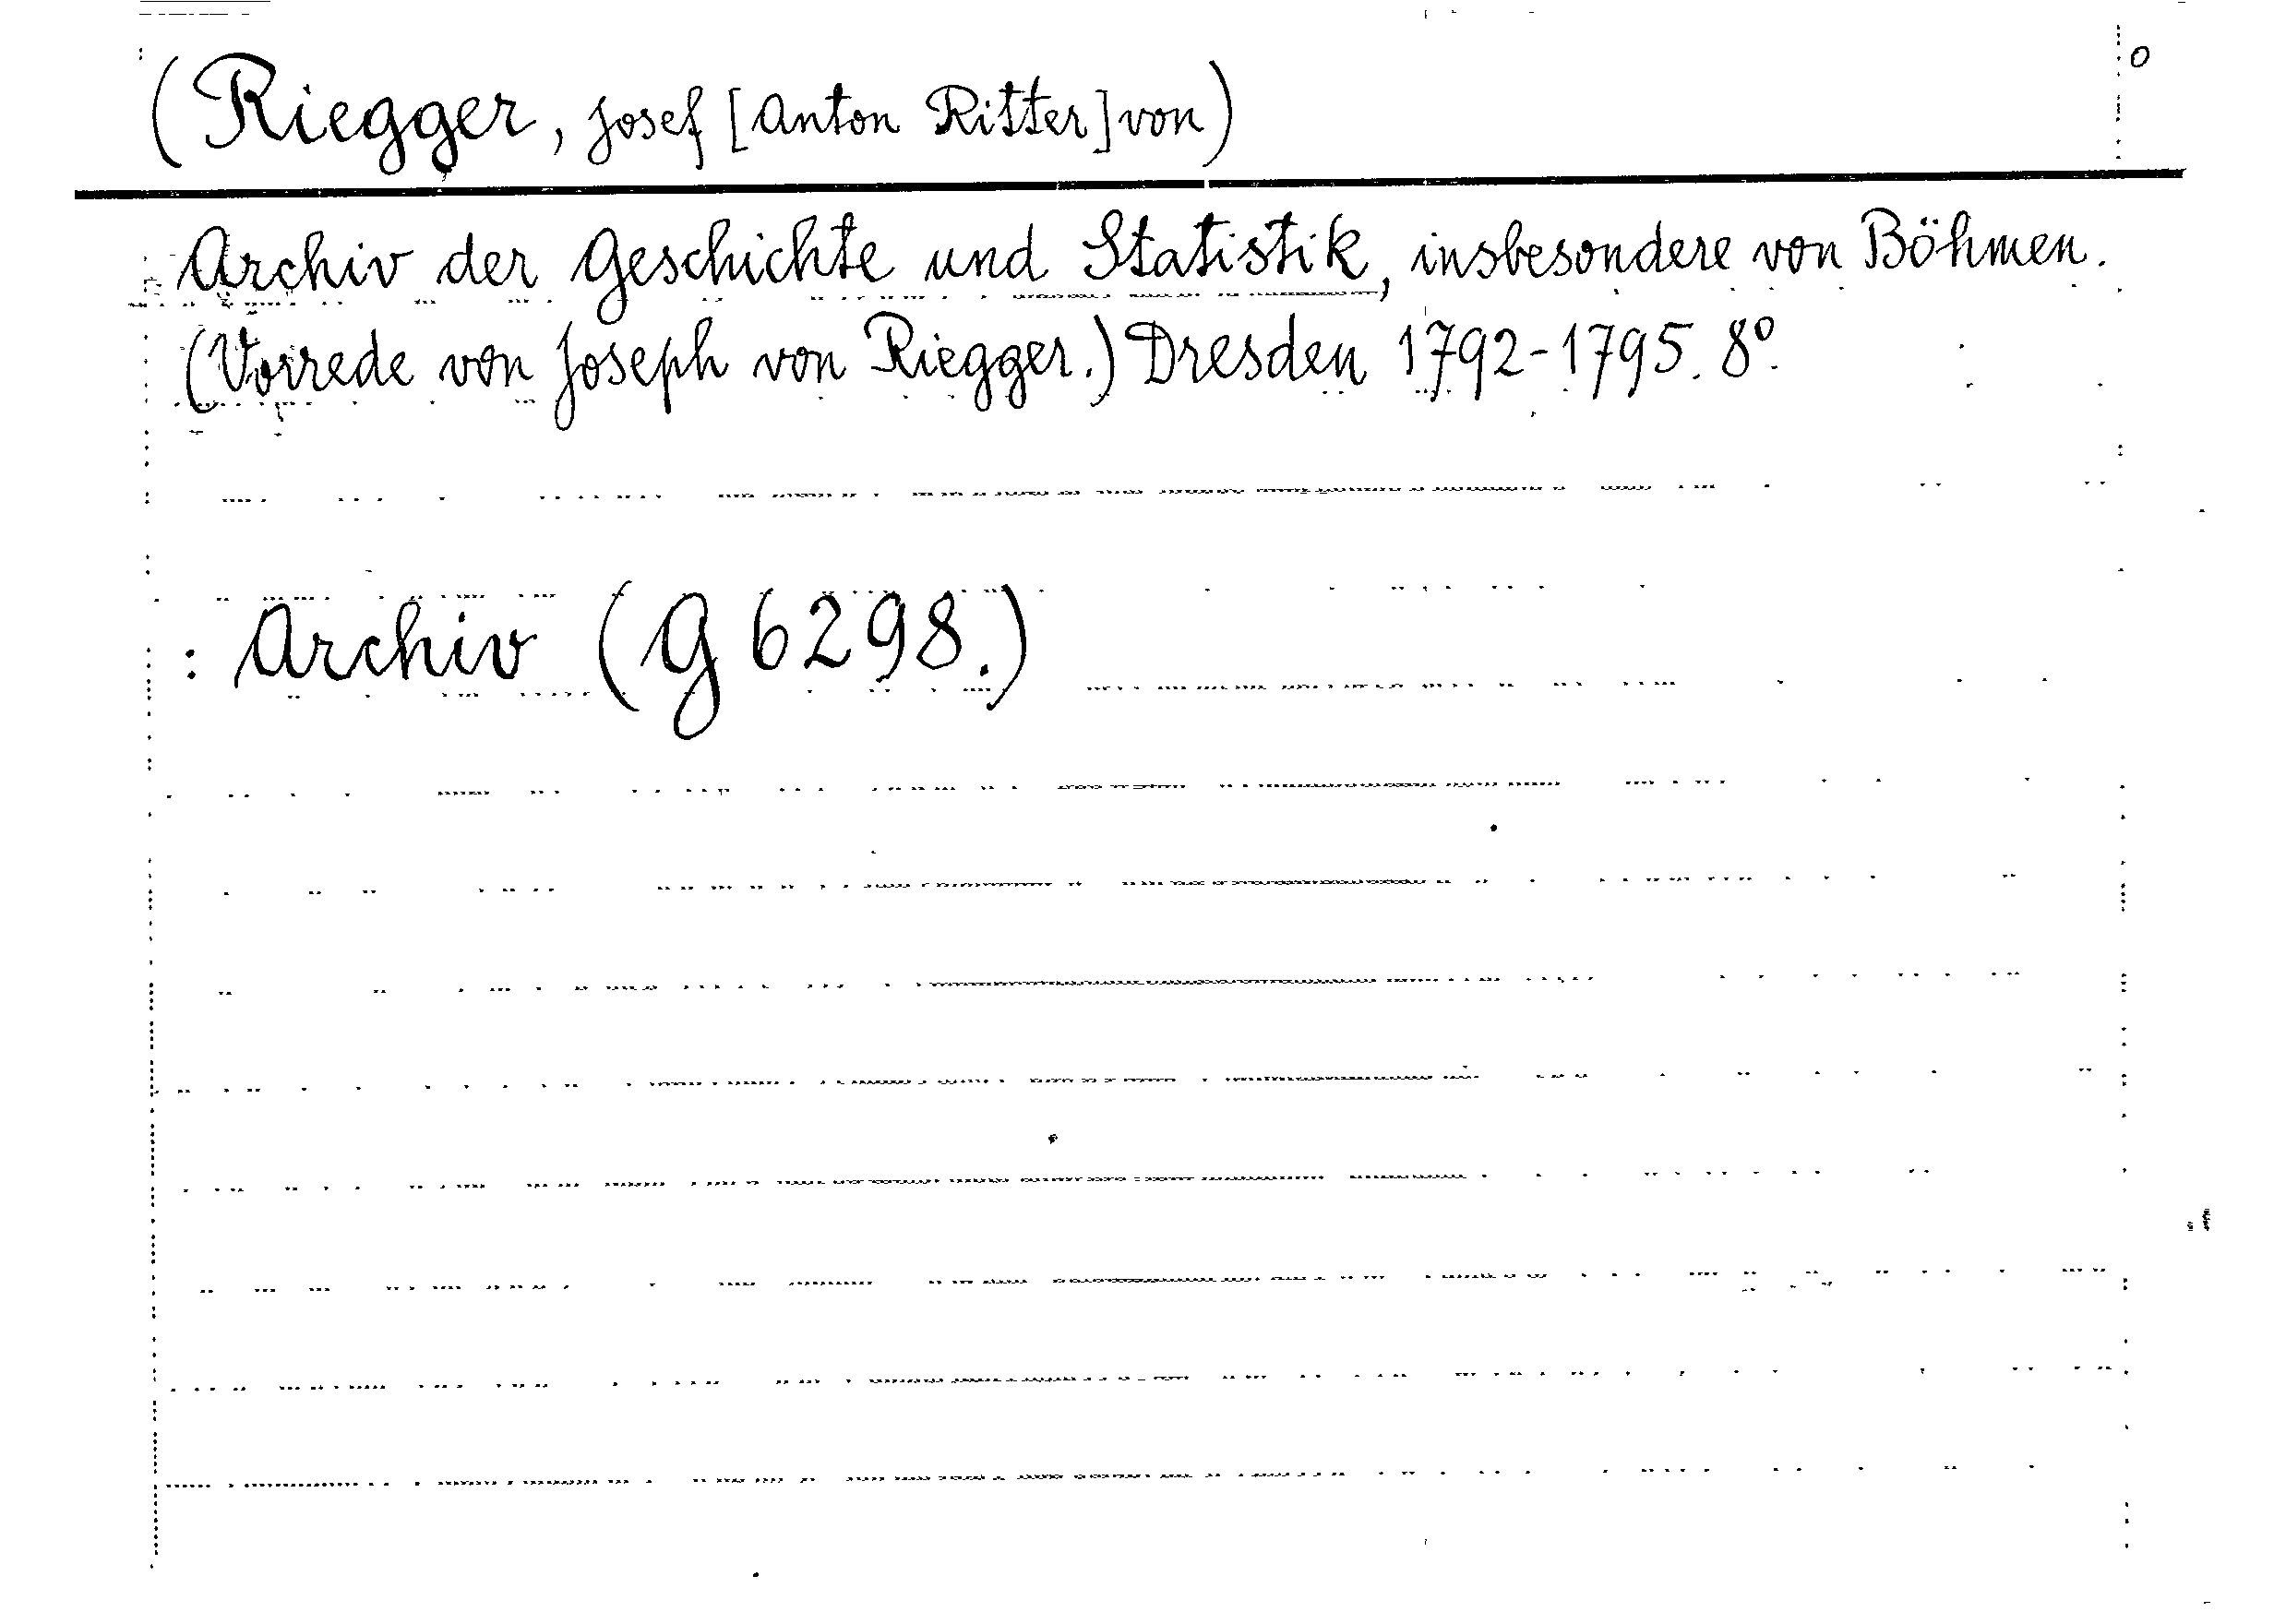 (Riegger, Josef [Anton Ritter] von) o
Archiv der Geschichte und Statistik, insbesondere von Böhmen.
(Vorrede von Joseph von Riegger.) Dresden 1792-1795. 8º.
: Archiv (G 6298.)